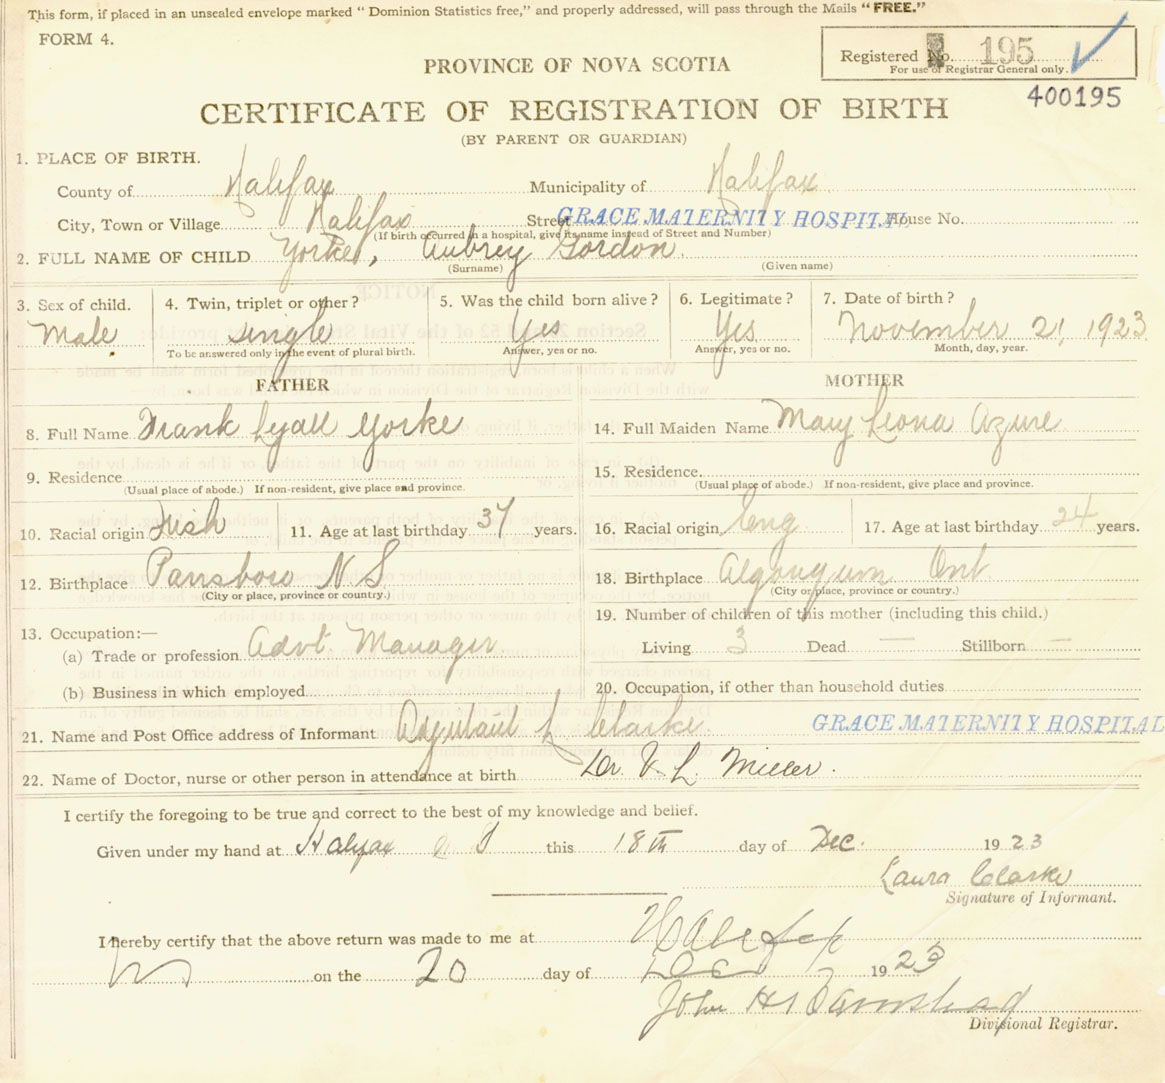 This form, if placed in an unsealed envelope marked “ Dominion Statistics free,” and properly addressed, will pass through the Mails “ FREE.”
FORM 4.
Registered No. 195
For use of Registrar General only.
PROVINCE OF NOVA SCOTIA
400195
CERTIFICATE OF REGISTRATION OF BIRTH
(BY PARENT OR GUARDIAN)
1. PLACE OF BIRTH.
County of Halifax Municipality of Halifax
City, Town or Village Halifax Street GRACE MATERNITY HOSPITAL House No.
(If birth occurred in a hospital, give its name instead of Street and Number)
2. FULL NAME OF CHILD Yorke, Aubrey Gordon
(Surname) (Given name)
3. Sex of child. 4. Twin, triplet or other? 5. Was the child born alive? 6. Legitimate? 7. Date of birth?
Male single Yes Yes November 21, 1923
To be answered only in the event of plural birth. Answer, yes or no. Answer, yes or no. Month, day, year.
FATHER MOTHER
8. Full Name Frank Lyall Yorke 14. Full Maiden Name Mary Leona Azure
9. Residence 15. Residence.
(Usual place of abode.) If non-resident, give place and province. (Usual place of abode.) If non-resident, give place and province.
10. Racial origin Irish 11. Age at last birthday 37 years. 16. Racial origin Eng 17. Age at last birthday 24 years.
12. Birthplace Parrsboro N S 18. Birthplace Ont
(City or place, province or country.) (City or place, province or country.)
19. Number of children of this mother (including this child.)
13. Occupation:—
(a) Trade or profession Advt. Manager Living 3 Dead — Stillborn —
(b) Business in which employed 20. Occupation, if other than household duties
21. Name and Post Office address of Informant Adjutant L Clarke GRACE MATERNITY HOSPITAL
22. Name of Doctor, nurse or other person in attendance at birth Dr. V. L. Miller.
I certify the foregoing to be true and correct to the best of my knowledge and belief.
Given under my hand at Halifax N S this 18th day of Dec. 1923
Laura Clarke
Signature of Informant.
I hereby certify that the above return was made to me at Halifax
NS on the 20 day of Dec 1923
John H
Divisional Registrar.